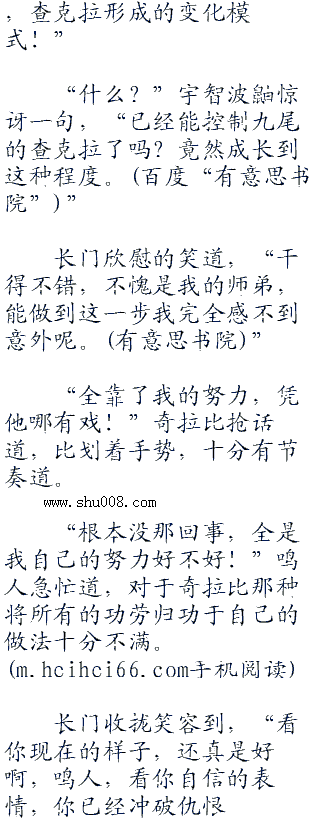 ，查克拉形成的变化模
式！”
“什么？”宇智波鼬惊
讶一句，“已经能控制九尾
的查克拉了吗？竟然成长到
这种程度。(百度“有意思书
院”)”
长门欣慰的笑道，“干
得不错，不愧是我的师弟，
能做到这一步我完全感不到
意外呢。(有意思书院)”
“全靠了我的努力，凭
他哪有戏！”奇拉比抢话
道，比划着手势，十分有节
奏道。
www.shu008.com
“根本没那回事，全是
我自己的努力好不好！”鸣
人急忙道，对于奇拉比那种
将所有的功劳归功于自己的
做法十分不满。
(m.hcihci66.com手机阅读)
长门收拢笑容到，“看
你现在的样子，还真是好
啊，鸣人，看你自信的表
情，你已经冲破仇恨